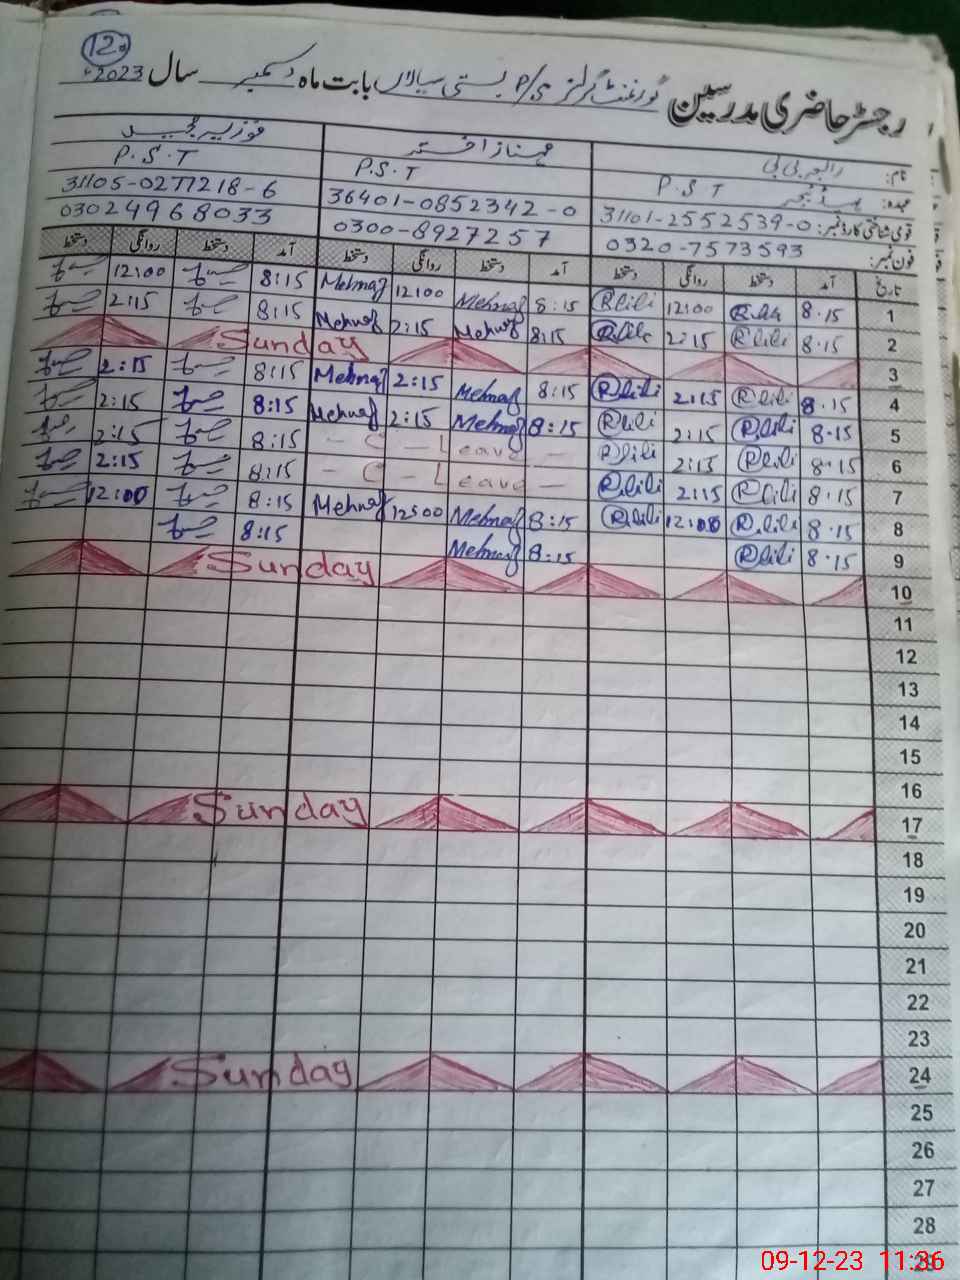 12
رجسٹر حاضری مدرسین گورنمنٹ گرلز P/S بستی سیالاں بابت ماہ دسمبر سال 2023ء
نام: رابعہ بی بی مہناز اختر فوزیہ مجید
عہدہ: ہیڈ ٹیچر P.S.T P.S.T P.S.T
قومی شناختی کارڈ نمبر: 31101-2552539-0 36401-0852342-0 31105-0277218-6
فون نمبر: 0320-7573593 0300-8927257 03024968033
تاریخ آمد دستخط روانگی دستخط آمد دستخط روانگی دستخط آمد دستخط روانگی دستخط
1 8.15 12:00 8:15 Mehnaz 12:00 Mehnaz 8:15 12:00
2 8.15 2:15 8:15 Mehnaz 2:15 Mehnaz 8:15 2:15
3 Sunday
4 8.15 2:15 8:15 Mehnaz 2:15 Mehnaz 8:15 2:15
5 8.15 2:15 8:15 Mehnaz 2:15 Mehnaz 8:15 2:15
6 8.15 2:15 - C - Leave - 8:15 2:15
7 8.15 2:15 - C - Leave - 8:15 2:15
8 8.15 12:00 8:15 Mehnaz 12:00 Mehnaz 8:15 12:00
9 8.15 8:15 Mehnaz 8:15
10 Sunday
11
12
13
14
15
16
17 Sunday
18
19
20
21
22
23
24 Sunday
25
26
27
28
29
09-12-23 11:36